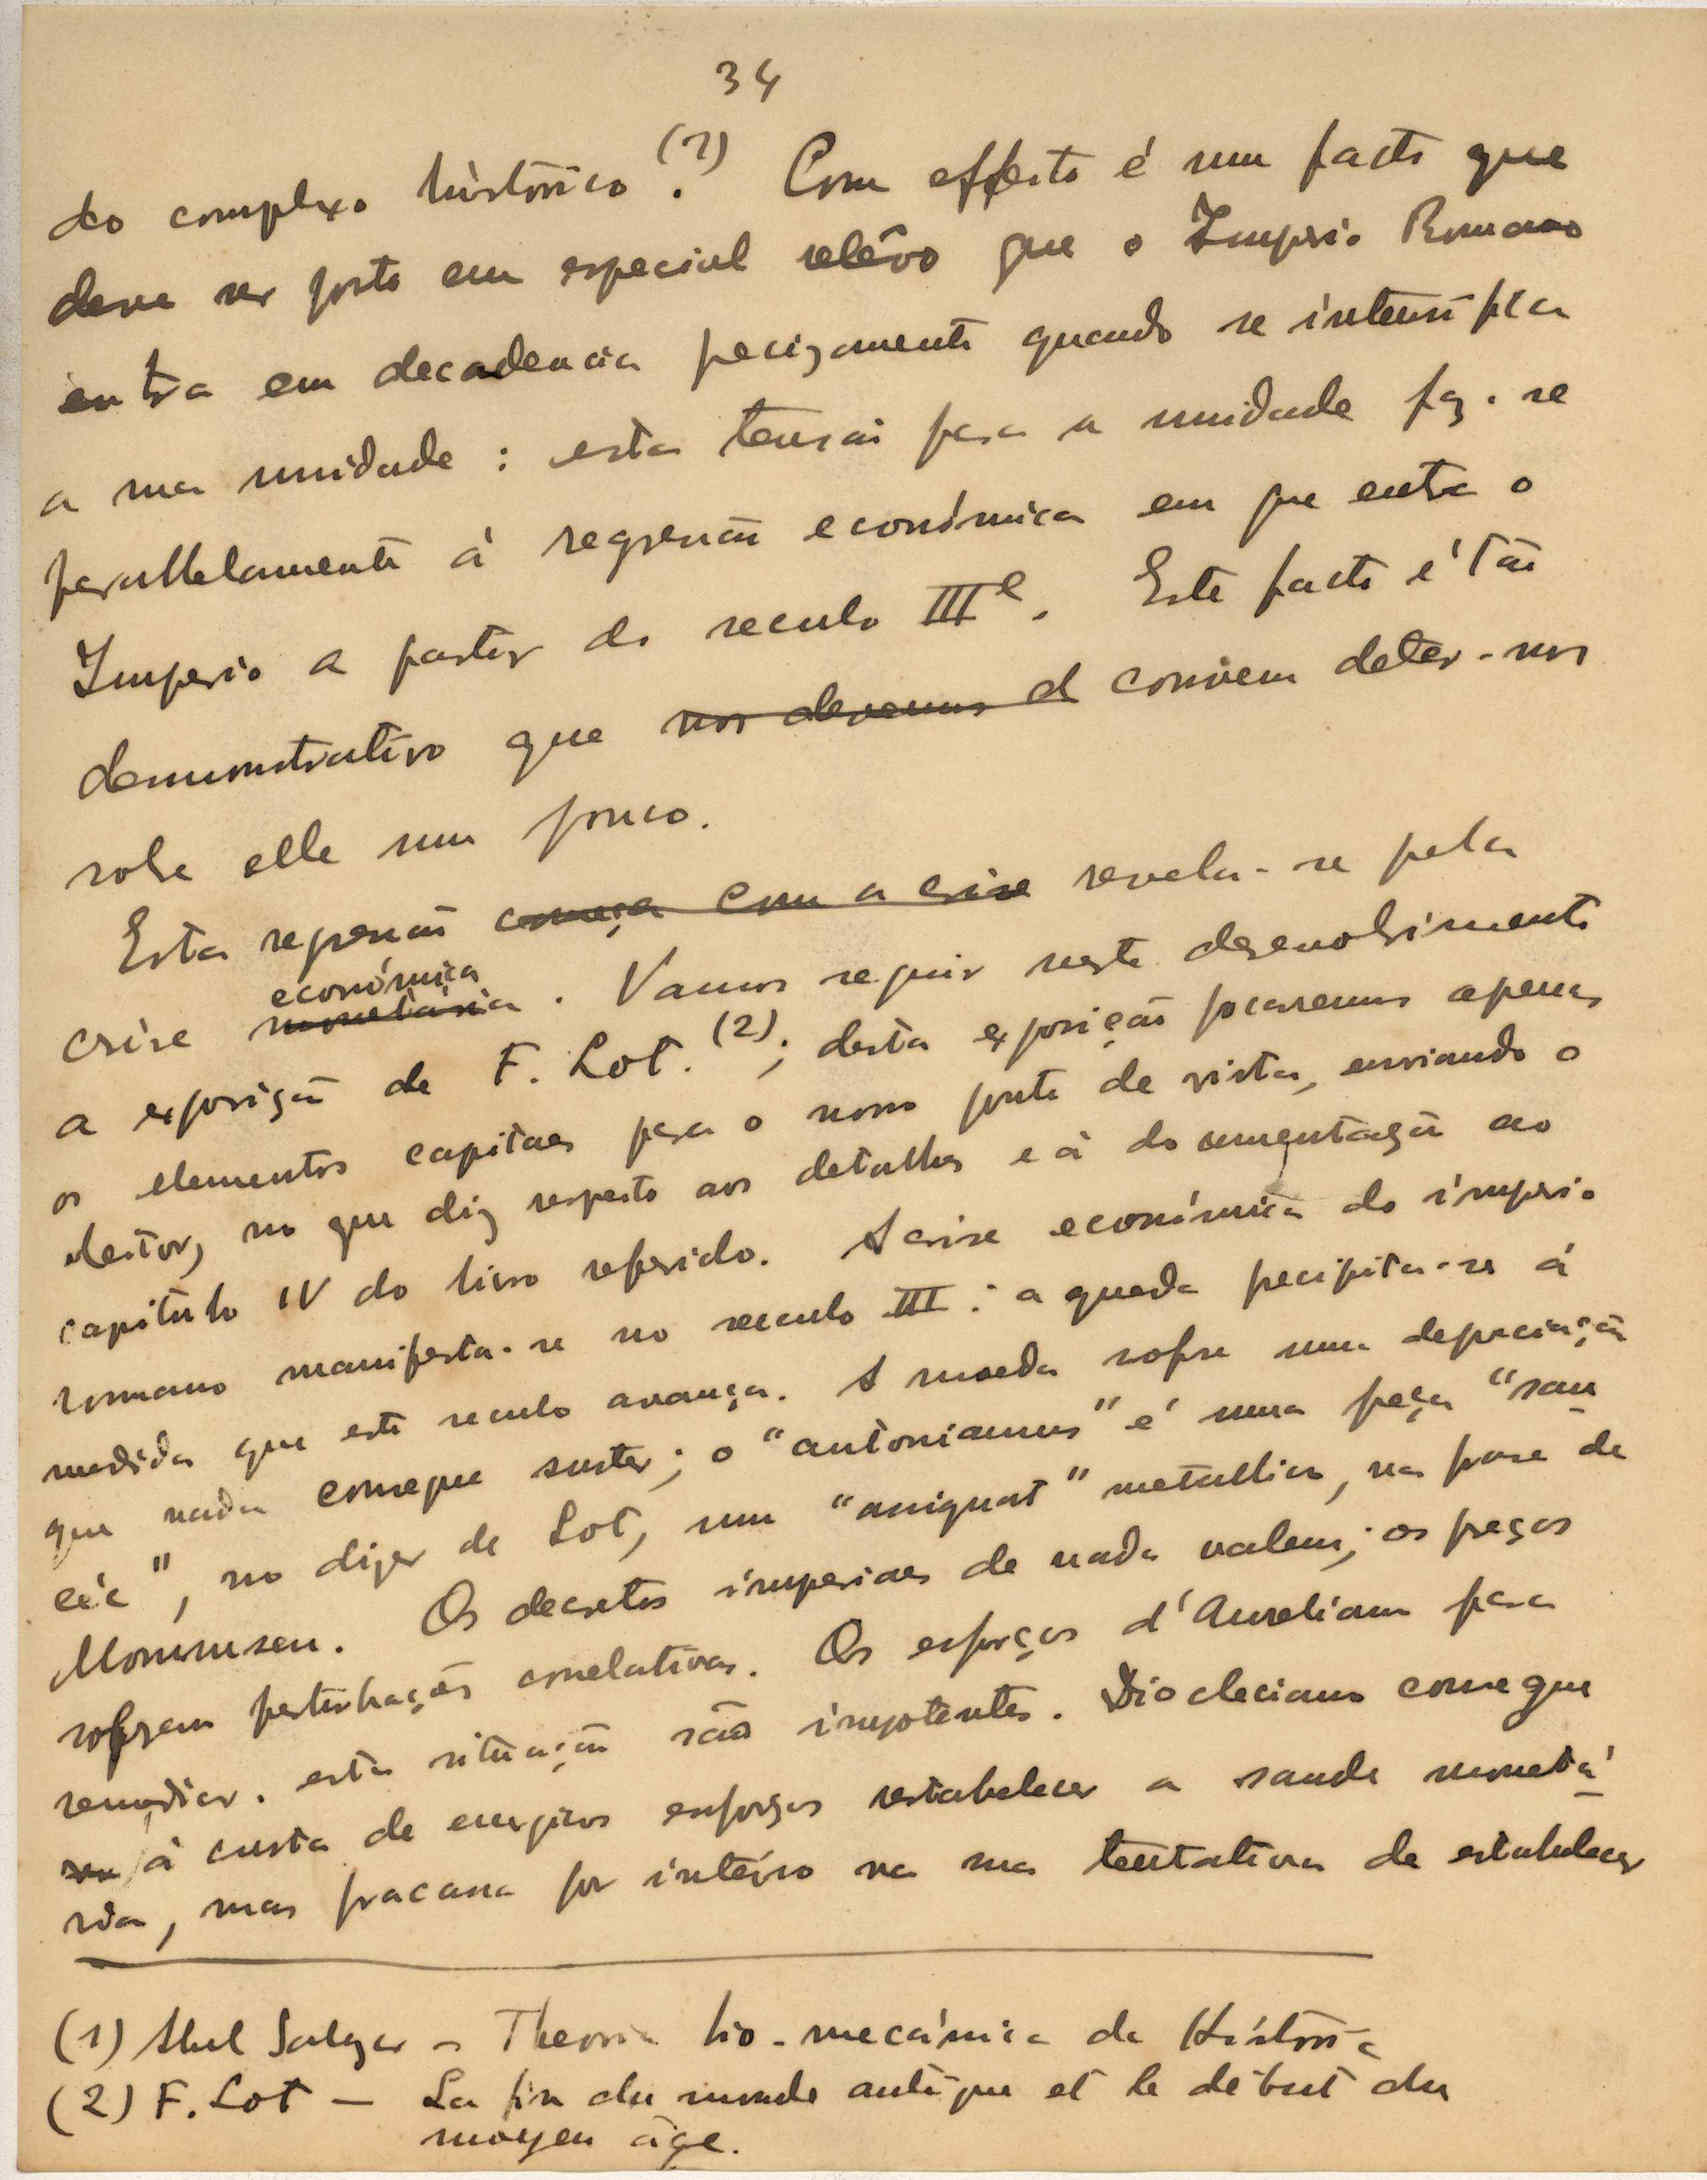 34
do complexo histórico (1)? Com effeito é um facto que
deve ser posto em especial relêvo que o Imperio Romano
entra em decadencia precizamente quando se intensifica
a sua unidade : esta tensão para a unidade faz-se
parallelamente á regressão económica em que entra o
Imperio a partir do seculo IIIº. Este facto é tão
demonstrativo que nos devemos d convem deter-nos
sobre elle um pouco.
Esta regressão começa com a crise revela-se pela
crise monetaria económica. Vamos seguir neste desenvolvimento
a exposição de F. Lot. (2); desta exposição focaremos apenas
os elementos capitaes para o nosso ponto de vista, enviando o
leitor, no que diz respeito aos detalhes e á documentação ao
capitulo IV do livro referido. A crise económica do império
romano manifesta-se no seculo III : a queda precipita-se á
medida que este seculo avança. A moeda sofre uma depreciação
que nada consegue suster; o "antonianus" é uma peça "sau
cée", no dizer de Lot, um "assignat" metallico, na frase de
Mommsen. Os decretos imperiaes de nada valem; os preços
sofrem perturbações correlativas. Os esforços d'Aureliano para
remediar esta situação são impotentes. Diocleciano consegue
á custa de energicos esforços restabelecer a saude monetá
ria, mas fracassa por inteiro na sua tentativa de estabelecer
(1) Abel Salazar - Theoria bio-mecánica da História
(2) F. Lot - La fin du monde antique et le début du
moyen âge.